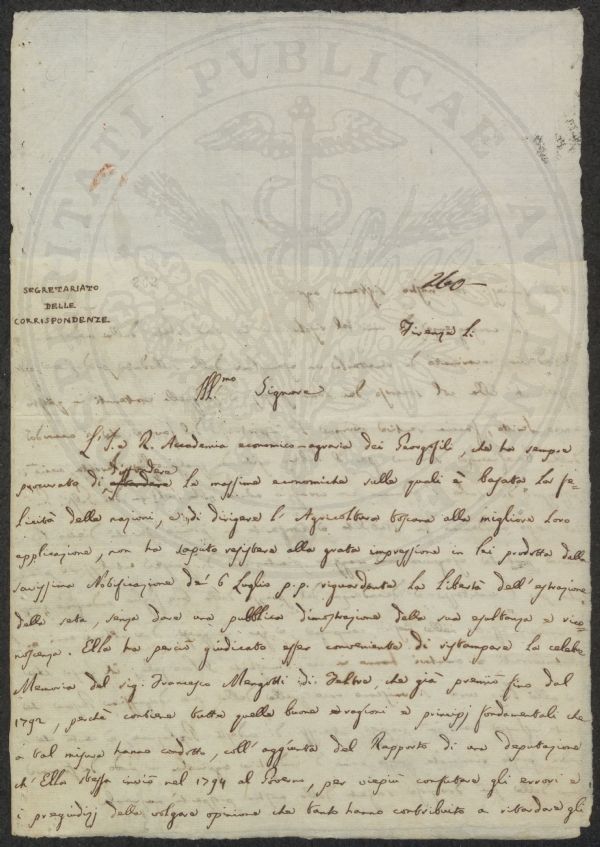 PROSPERITATI PVBLICAE AVG
SEGRETARIATO
DELLE
CORRISPONDENZE
260
Firenze li
Ill.mo Signore
L'I. e R. Accademia economico-agraria dei Georgofili, che ha sempre
procurato di diffondere le massime economiche sulle quali è basata la fe-
licità delle nazioni, e di dirigere l'Agricoltura toscana alla migliore loro
applicazione, non ha saputo resistere alla grata impressione in lei prodotta dalla
savissima Notificazione de' 6 Luglio p.p. riguardante la libertà dell'estrazione
della seta, senza dare una pubblica dimostrazione della sua esultanza e rico-
noscenza. Ella ha perciò giudicato esser conveniente di ristampare la celebre
Memoria del sig. Francesco Mengotti di Feltre, che già premiò fino dal
1792, perchè contiene tutte quelle buone ragioni e principj fondamentali che
a tal misura hanno condotto, coll'aggiunta del Rapporto di una deputazione
ch'Ella stessa inviò nel 1794 al Governo, per viepiù confutare gli errori e
i pregiudizj della volgare opinione che tanto hanno contribuito a ritardare gli